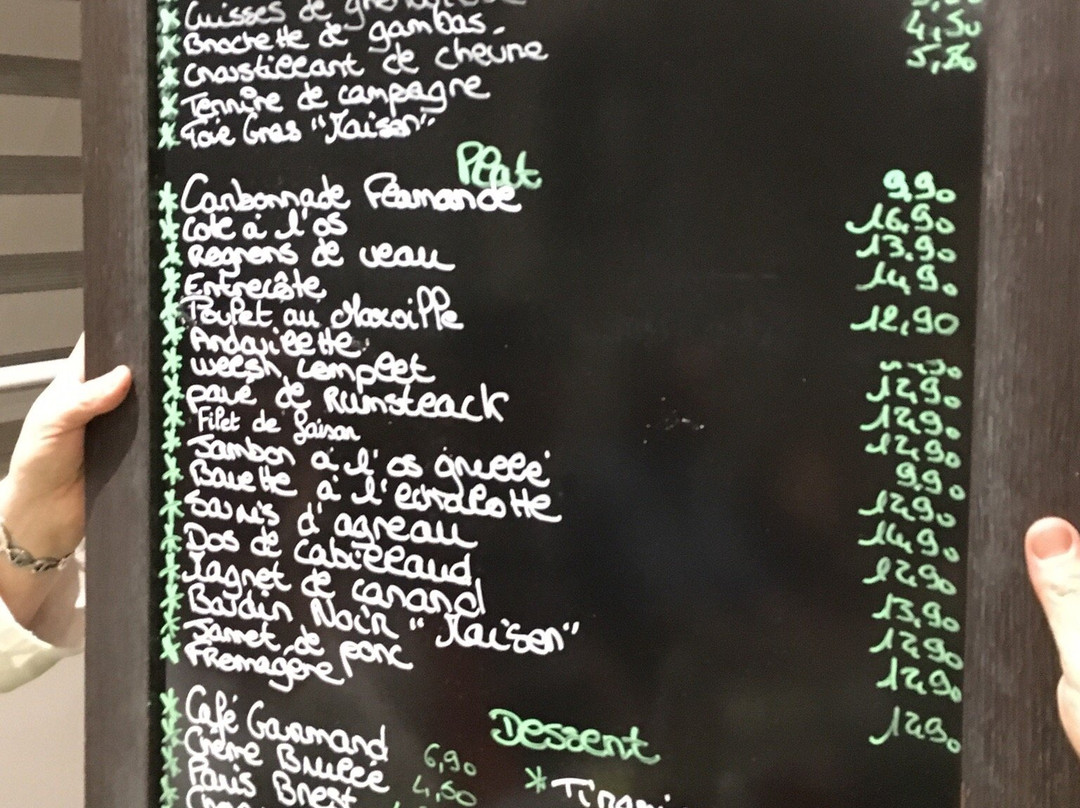 Cuisses de grenouille
Brochette de gambas. 4,50
Croustillant de chèvre 5,80
Terrine de campagne
Foie Gras "Maison"
Plat
Carbonnade Flamande 9,90
Côte à l'os 16,90
Rognons de veau 13,90
Entrecôte 14,90
Poulet au Maroille 12,90
Andouillette
Welsh Complet 12,90
pavé de Rumsteack 12,90
Filet de Saison 12,90
Jambon à l'os grillé 9,90
Bavette à l'échalotte 12,90
Souris d'agneau 14,90
Dos de Cabillaud 12,90
Magret de canard 13,90
Boudin Noir "Maison" 12,90
Jarret de porc 12,90
Fromagère 12,90
Dessert
Café Gourmand 6,90
Crème Brulée 4,50
Paris Brest